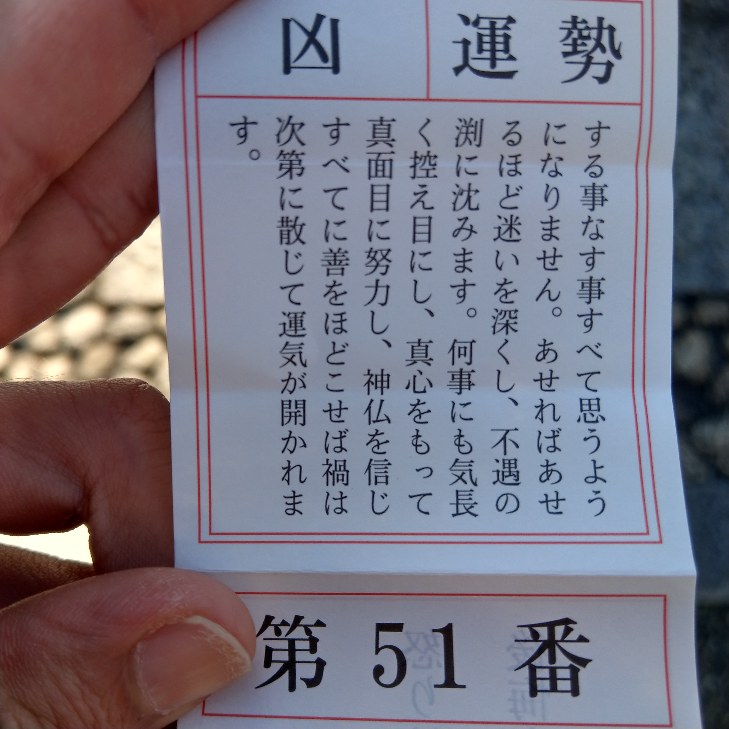 運勢
凶
する事なす事すべて思うよう
になりません。あせればあせ
るほど迷いを深くし、不遇の
渕に沈みます。何事にも気長
く控え目にし、真心をもって
真面目に努力し、神仏を信じ
すべてに善をほどこせば禍は
次第に散じて運気が開かれま
す。
第51番